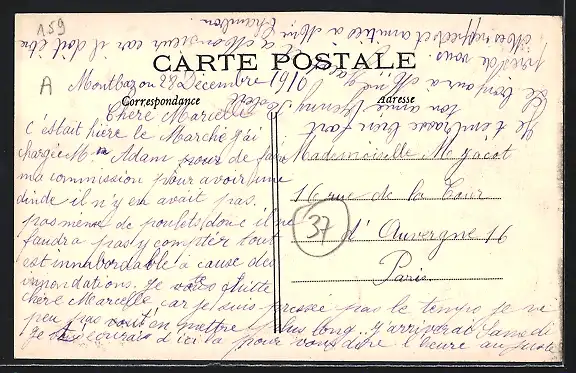 159
A
CARTE POSTALE
Correspondance
Adresse
Montbazon 28 Décembre 1910
Chère Marcelle
C'était hière le Marché j'ai
chargée Mme Adam pour de faire
ma commission pour avoir une
dinde il n'y en avait pas.
pas même de poulets donc il ne
faudra pas y compter tout
est innabordable à cause des
innondations. Je vous quitte
chère Marcelle car je suis pressée pas le temps je ne
peu pas vout en mettre plus long. J'arriverai Samedi
Je écrirais d'ici là pour vous dire l'heure au juste
Mademoiselle M Jacot
16 rue de la Tour
d'Auvergne 16
Paris
37
Je t'embrasse bien fort
ton amie Jenny
Le bonjour à
près de vous.
Mes respects et amitiés à Mme Chambon
et à Monsieur car il doit être